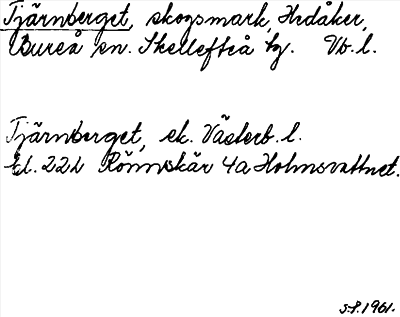 Tjärnberget, skogsmark, Hedåker,
Bureå sn. Skellefteå tg. Vb. l.
Tjärnberget, ek. Västerb. l.
El. 22L Rönnskär 4a Holmsvattnet.
S.P. 1961.